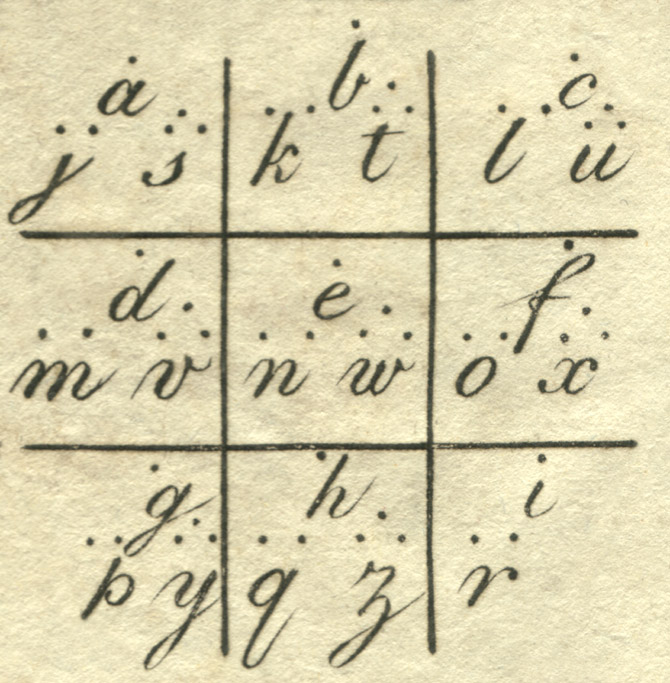 a b c
j s k t l u
d e f
m v n w o x
g h i
p y q z r